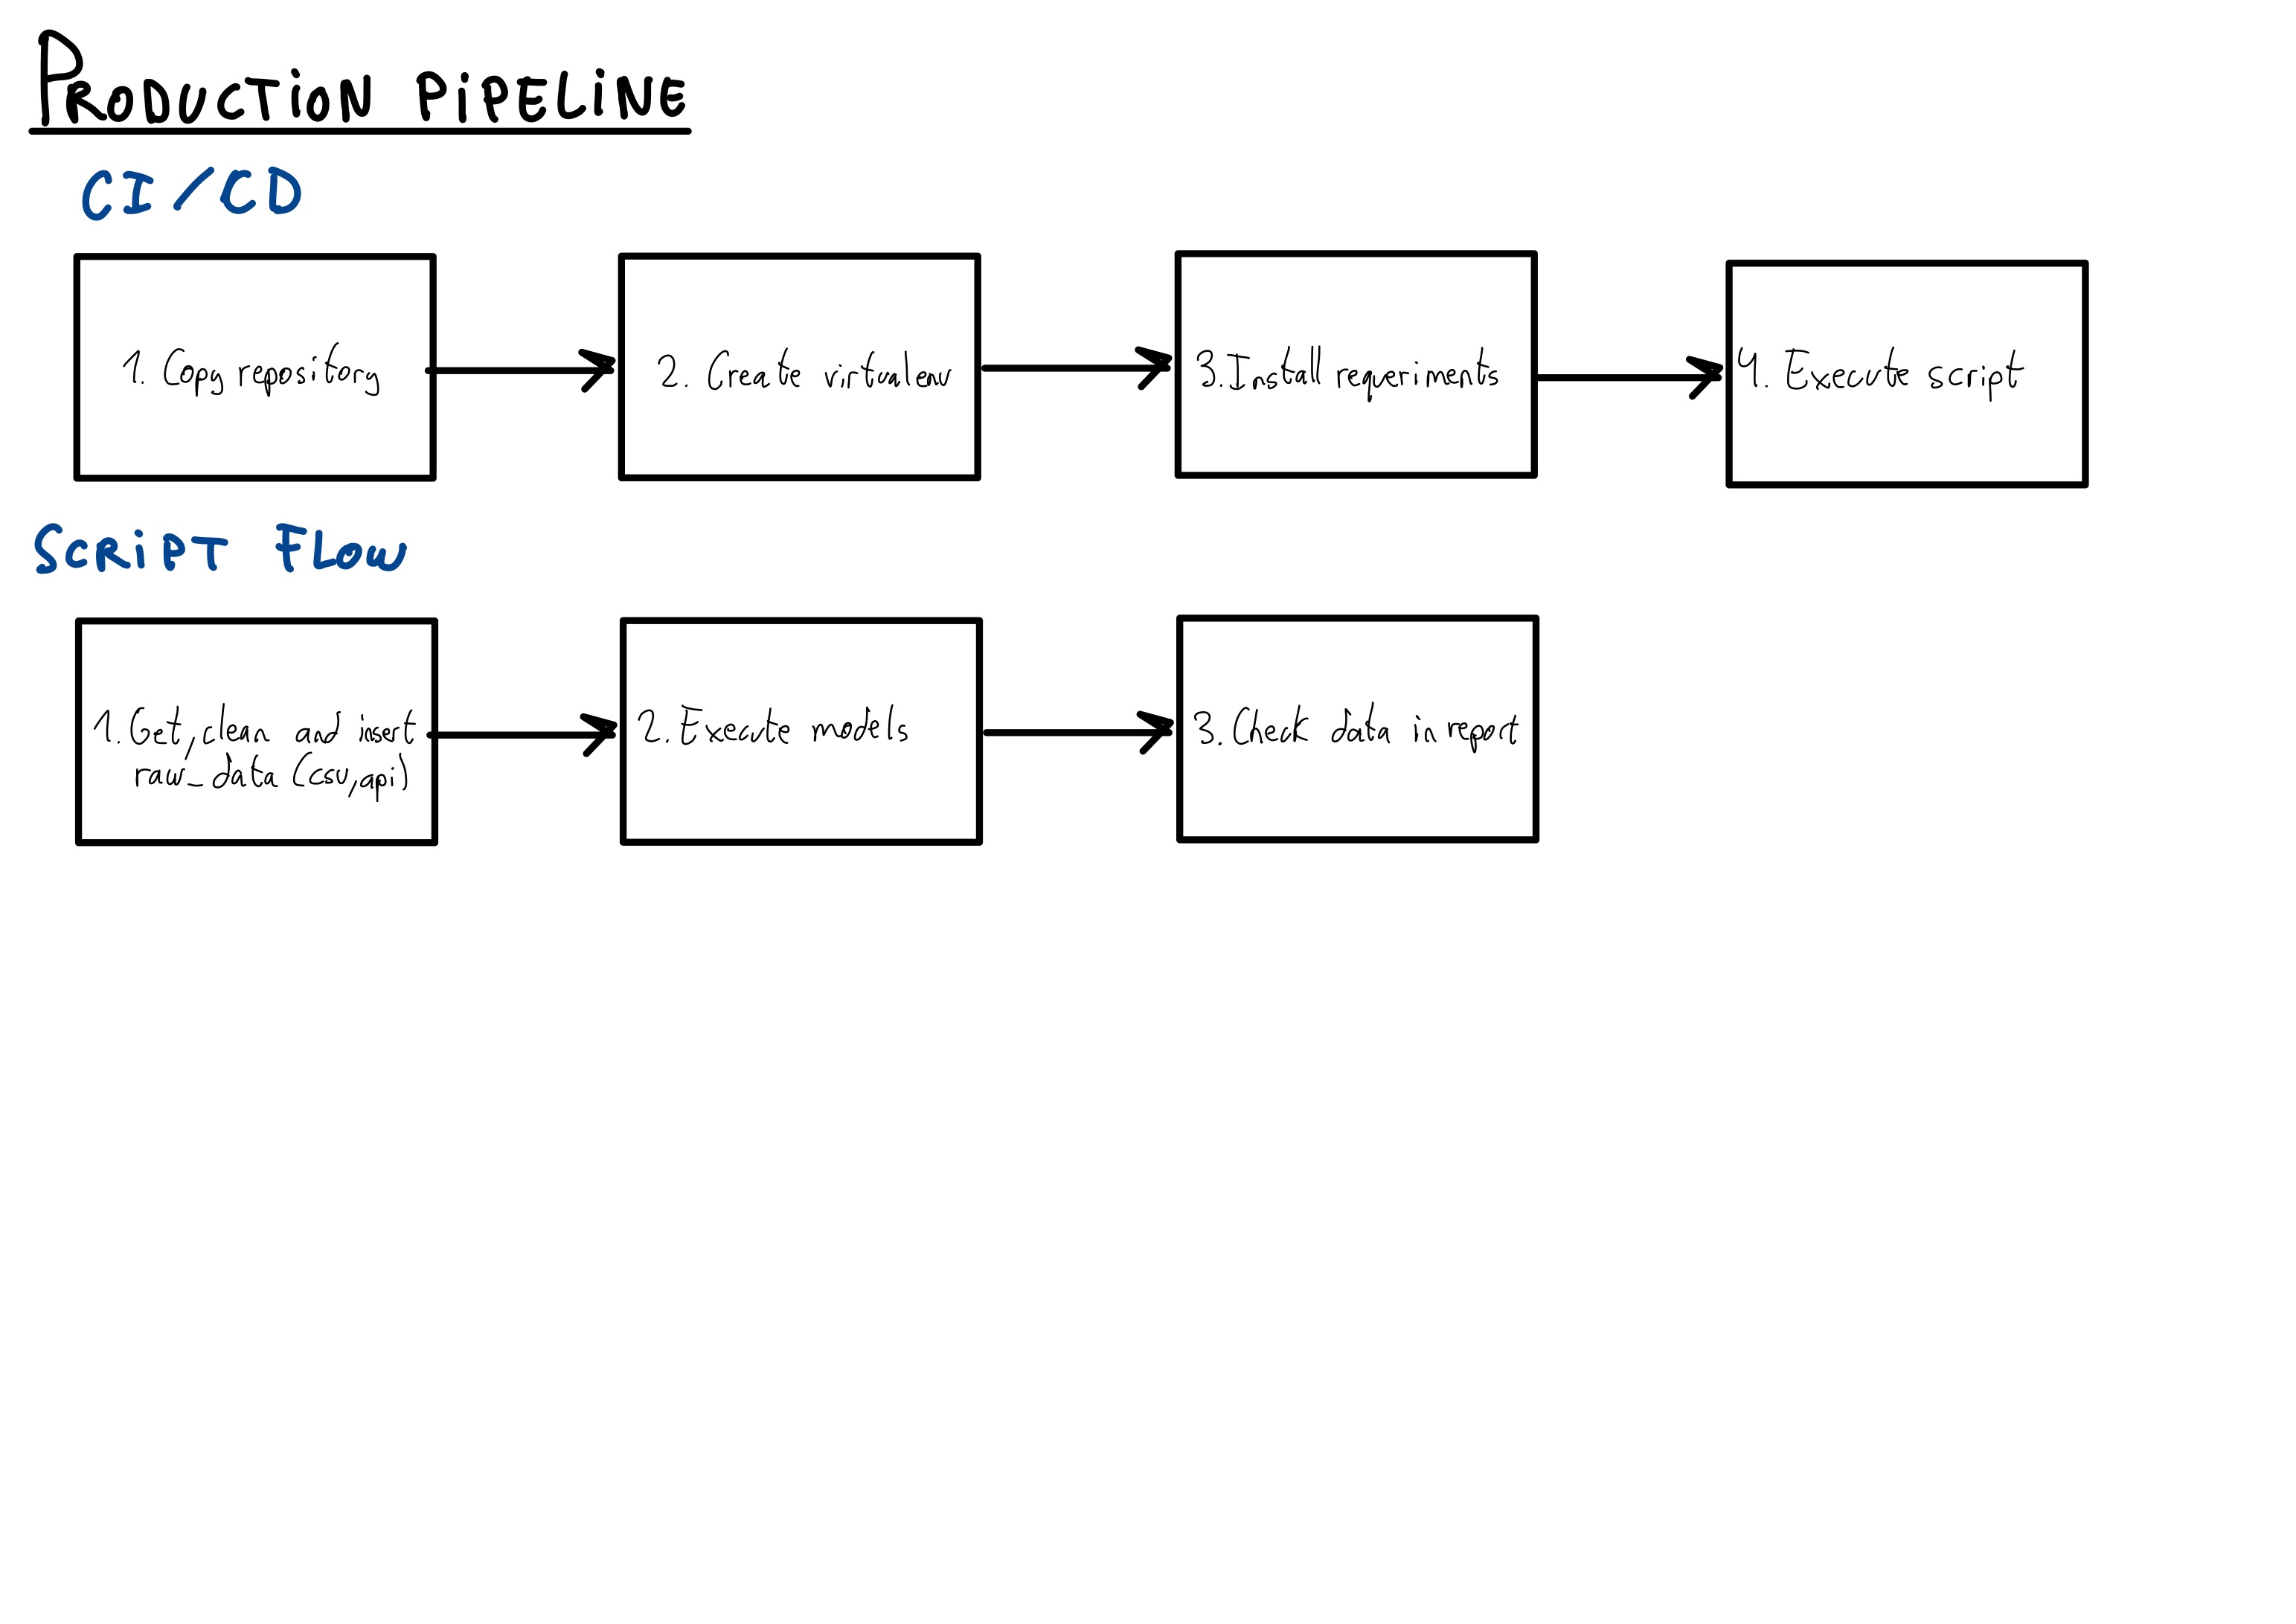 PRODUCTION PIPELINE
CI/CD
1. Copy repository
2. Create virtualenv
3. Install requeriments
4. Execute script
SCRIPT FLOW
1. Get, clean and insert
raw_data (csv, api)
2. Execute models
3. Check data in report